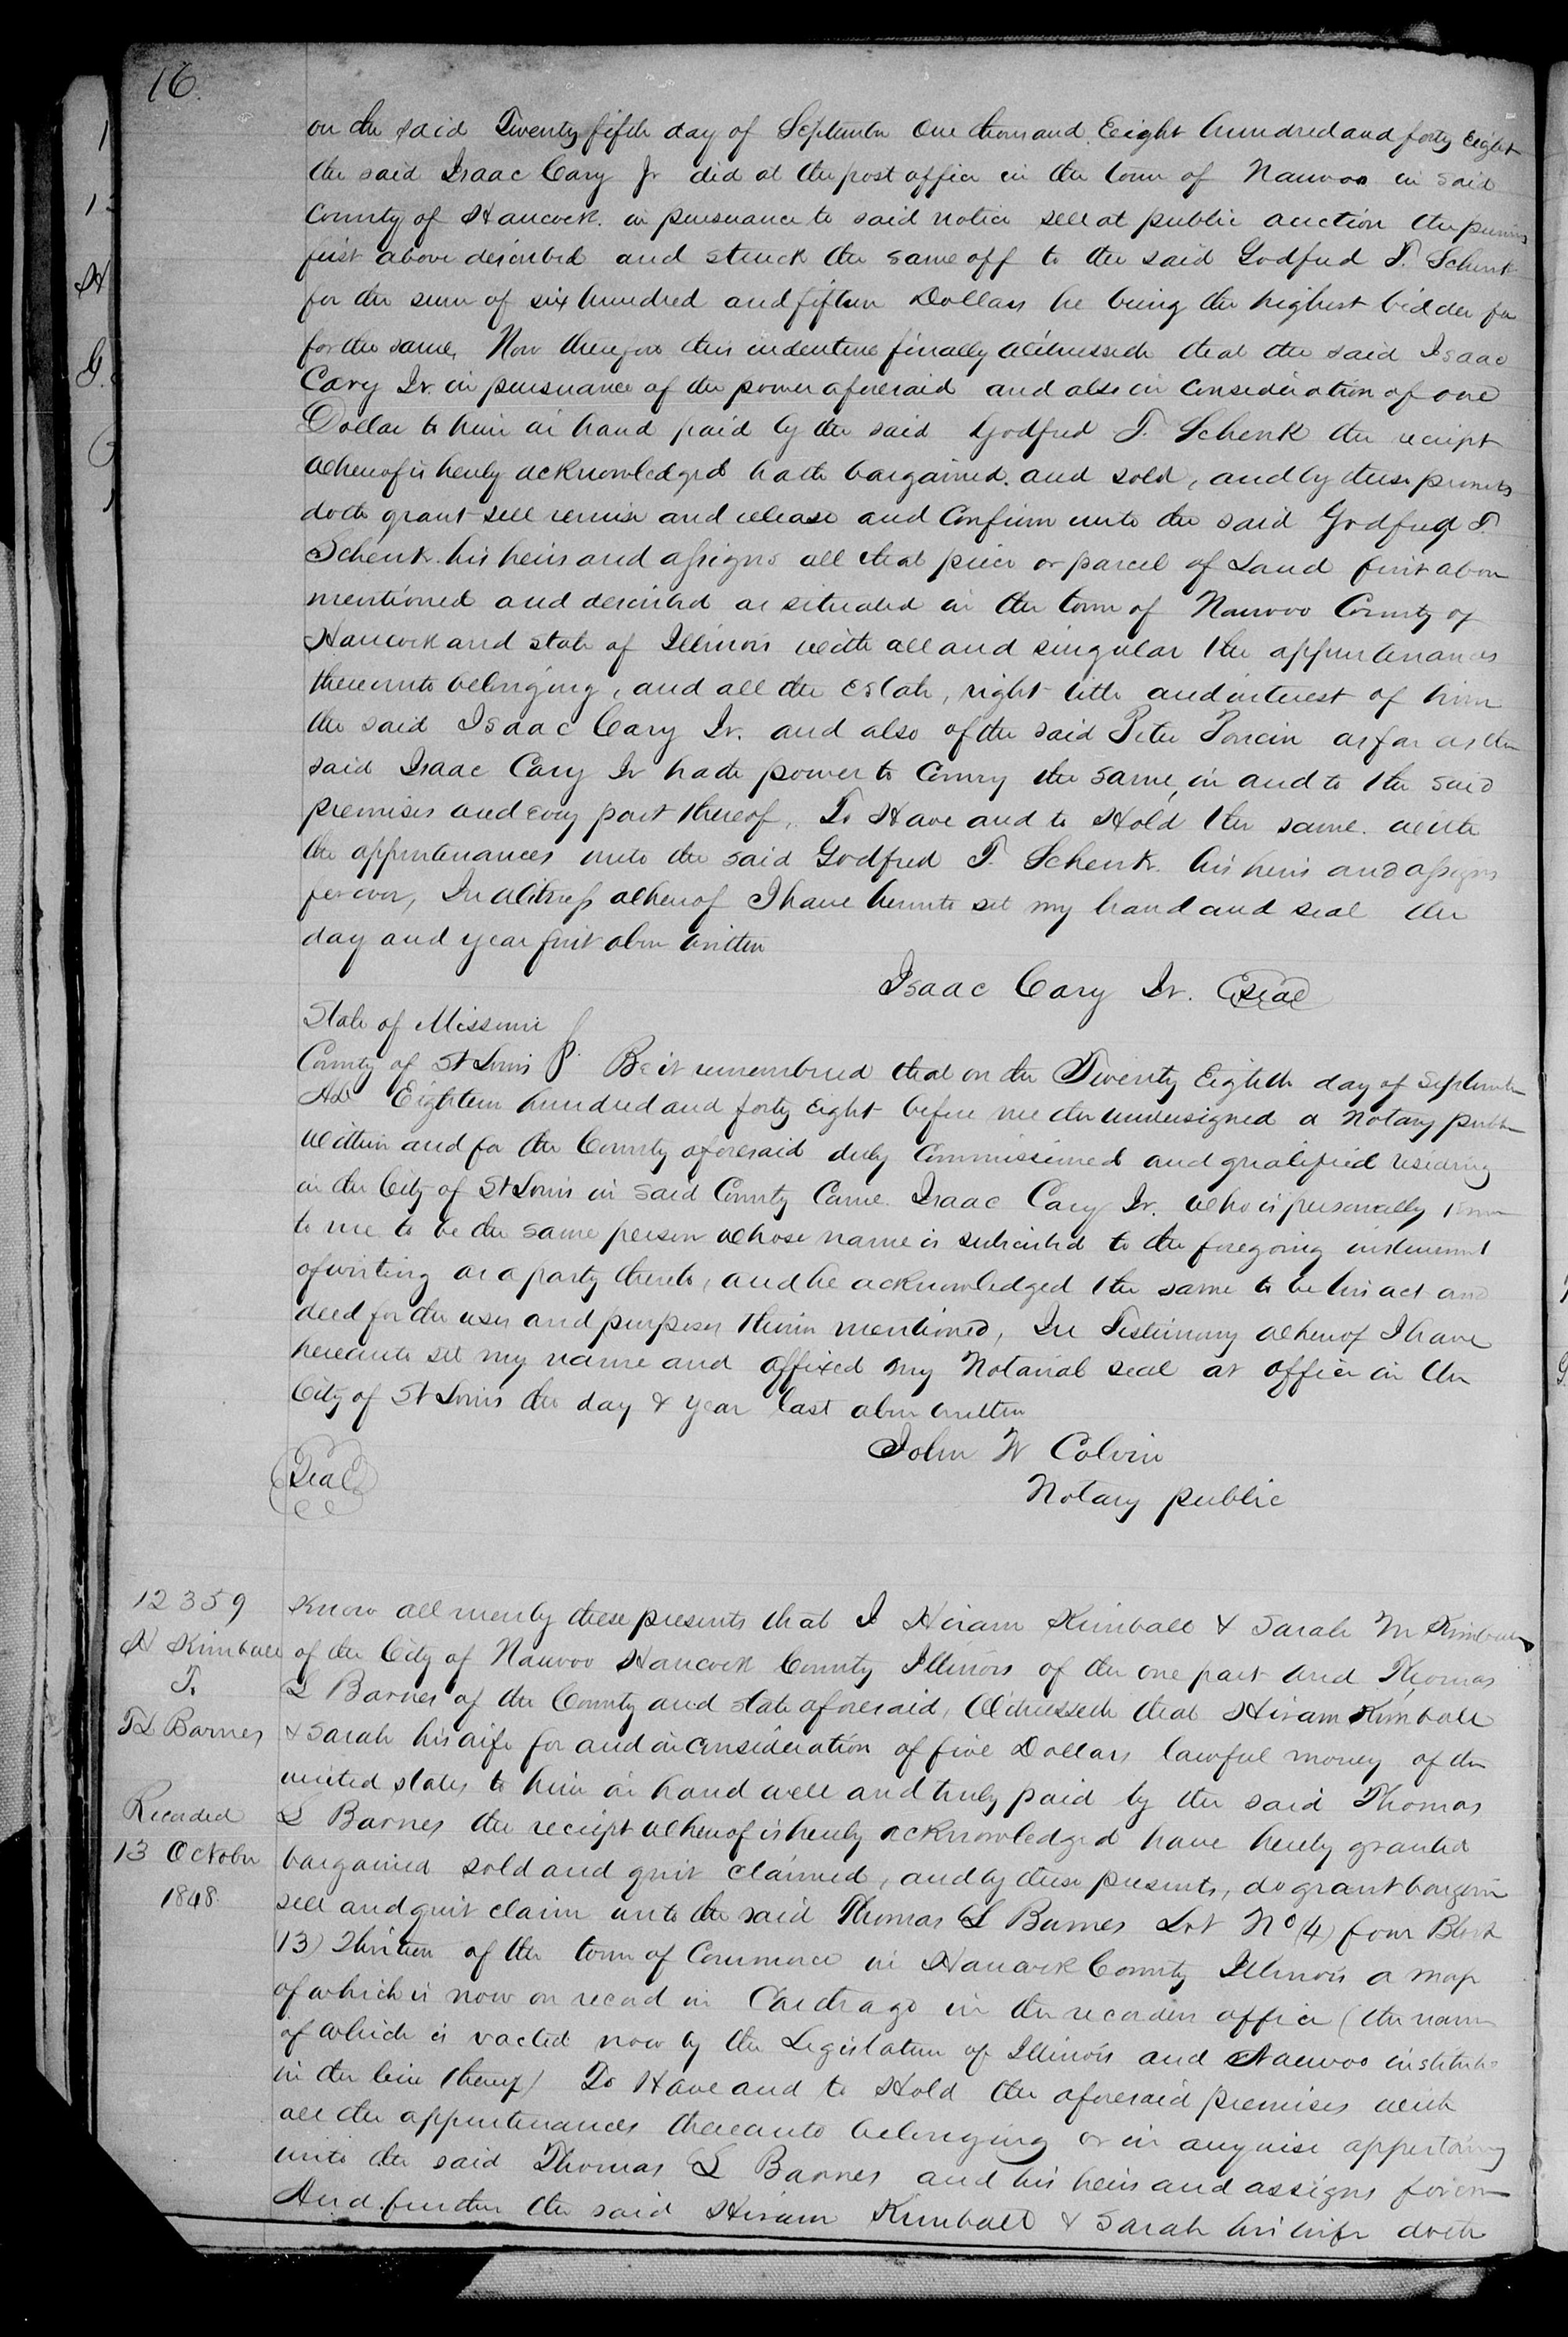 16.
on the said Twenty fifth day of September One thousand Eight hundred and forty Eight
the said Isaac Cary Jr did at the post office in the town of Nauvoo in said
County of Hancock in pursuance to said notice sell at public auction the premises
first above described and struck the same off to the said Godfred T. Schenk
for the sum of six hundred and fifteen Dollars he being the highest bidder for
for the same, Now therefore this indenture finally Witnesseth that the said Isaac
Cary Jr. in pursuance of the power aforesaid and also in Consideration of one
Dollar to him in hand paid by the said Godfred T. Schenk the receipt
whereof is hereby acknowledged hath bargained and sold, and by these presents
doth grant sell remise and release and Confirm unto the said Godfred T.
Schenk his heirs and assigns all that piece or parcel of Land first above
mentioned and described as situated in the town of Nauvoo County of
Hancock and State of Illinois with all and singular the appurtenances
thereunto belonging, and all the Estate, right title and interest of him
the said Isaac Cary Jr. and also of the said Peter as far as the
said Isaac Cary Jr hath power to Convey the same, in and to the said
premises and every part thereof, To Have and to Hold the same with
the appurtenances unto the said Godfred T. Schenk his heirs and assigns
forever, In Witness whereof I have hereunto set my hand and seal the
day and year first above written
Isaac Cary Jr. Seal
State of Missouri
County of St Louis Be it remembered that on the Twenty Eighth day of September
AD Eighteen hundred and forty eight before me the undersigned a Notary public
Within and for the County aforesaid duly Commissioned and qualified residing
in the City of St Louis in said County Came Isaac Cary Jr. who is personally known
to me to be the same person whose name is subscribed to the foregoing instrument
of writing as a party thereto, and he acknowledged the same to be his act and
deed for the uses and purposes therein mentioned, In Testimony whereof I have
hereunto set my name and affixed my Notarial seal at office in the
City of St Louis the day & year last above written
John W Colvin
Seal
Notary public
12359
H Kimball
T.
TL Barnes
Recorded
13 October
1848
Know all men by these presents that I Hiram Kimball & Sarah M Kimball
of the City of Nauvoo Hancock County Illinois of the one part and Thomas
L Barnes of the County and state aforesaid, Witnesseth that Hiram Kimball
& Sarah his wife for and in consideration of five Dollars lawful money of the
united states to him in hand well and truly paid by the said Thomas
L Barnes the receipt whereof is hereby acknowledged have hereby granted
bargained sold and quit claimed, and by these presents, do grant bargain
sell and quit claim unto the said Thomas L Barnes Lot No (4) four Block
(13) Thirteen of the town of Commerce in Hancock County Illinois a map
of which is now on record in Carthage in the recorders office (the name
of which is vacted now by the Legislature of Illinois and Nauvoo institute
in the lieu thereof) To Have and to Hold the aforesaid premises with
all the appurtenances thereunto belonging or in anywise appertaining
unto the said Thomas L Barnes and his heirs and assigns forever
And further the said Hiram Kimball & Sarah his wife doth